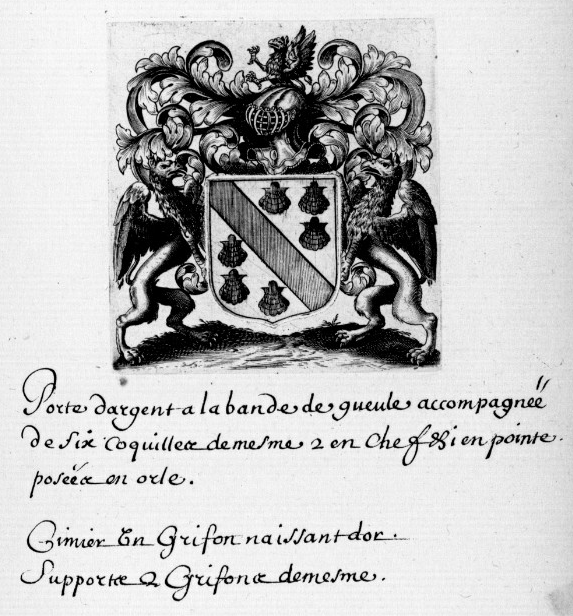 Porte dargent a la bande de gueule accompagnéé
de six coquilles demesme 2 en chef & i en pointe.
poséés en orle.
Cimier Un Grifon naissant dor.
Supports 2 Grifons demesme.